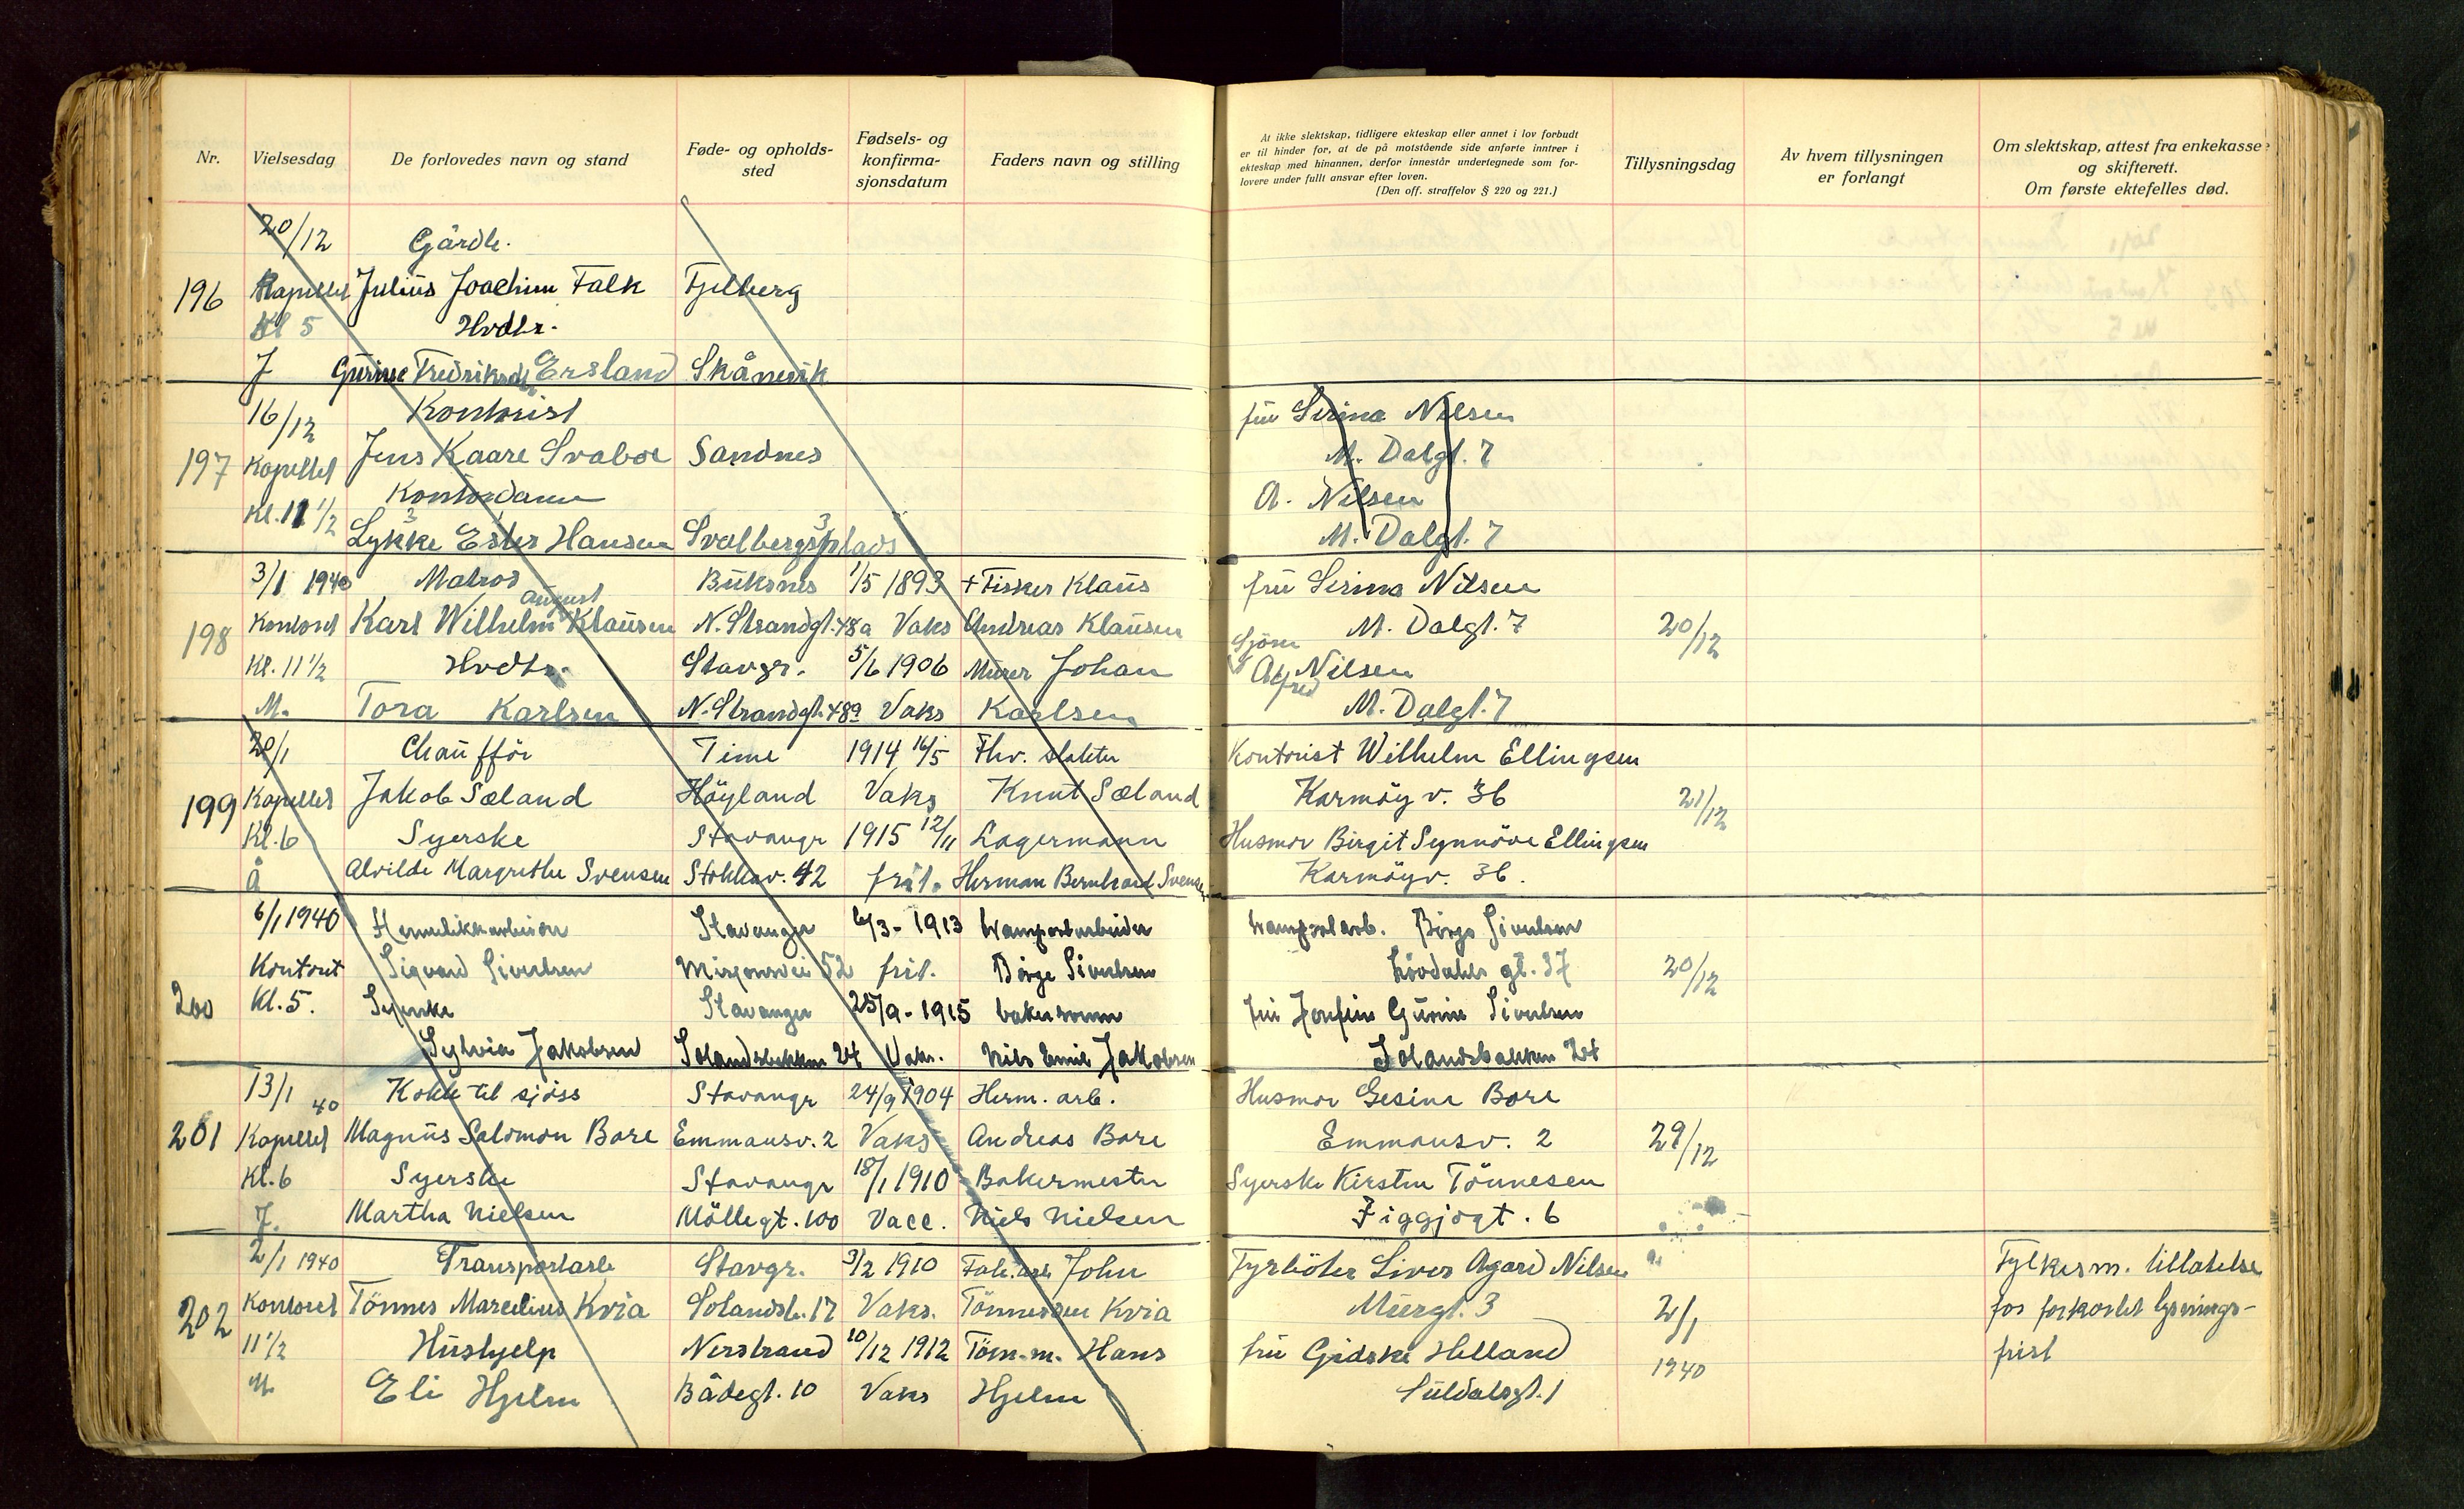 Nr.
Vielsesdag
De forlovedes navn og stand
Føde- og opholds-
sted
Fødsels- og
konfirma-
sjonsdatum
Faders navn og stilling
At ikke slektskap, tidligere ekteskap eller annet i lov forbudt
er til hinder for, at de på motstående side anførte inntrer i
ekteskap med hinannen, derfor innestår undertegnede som for-
lovere under fullt ansvar efter loven.
(Den off. straffelov § 220 og 221.)
Tillysningsdag
Av hvem tillysningen
er forlangt
Om slektskap, attest fra enkekasse
og skifterett.
Om første ektefelles død.
20/12 Gårdb.
196 Kapellet Julius Joachim Falk Fjelberg
Kl 5 Hvdtr.
J Gurine Fredriksdtr Ersland Skånevik
16/12 Kontorist fru Serina Nilsen
197 Kapellet Jens Kaare Svaboe Sandnes M. Dalgt. 7
Kl. 11 1/2 Kontordame A. Nilsen
Lykke Ester Hansen Svalbergsplads M. Dalgt. 7
3/1 1940 Matros Buksnes 1/5 1893 + Fisker Klaus fru Serina Nilsen
august
198 Kontoret Karl Wilhelm Klausen N. Strandgt. 48a Vaks Andreas Klausen M. Dalgt. 7 20/12
Kl. 11 1/2 Hvdtr. Stavgr. 5/6 1906 Murer Johan Sjöm Alfred Nilsen
M. Tora Karlsen N. Strandgt. 48a Vaks Karlsen M. Dalgt. 7
20/1 Chaufför Time 1914 16/5 Fhv. slakter Kontorist Wilhelm Ellingsen
199 Kapellet Jakob Sæland Höyland Vaks Knut Sæland Karmöyv. 36 21/12
Kl. 6 Syerske Stavangr 1915 12/11 Lagermann Husmor Birgit Synnöve Ellingsen
Å Alvilde Margrethe Svensen Stokkav. 42 frit. Herman Bernhard Svensen Karmöyv. 36.
6/1 1940 Hermetikkarbeider Stavanger 6/3 - 1913 transportarbeider transportarb. Börge Sivertsen
Kontoret Sigvard Sivertsen Misjonsvei 52 frit. Börge Sivertsen Lövdahls gt. 37 20/12
200 Kl. 5. Syerske Stavanger 25/9 - 1915 bakersvenn fru Josefine Gurine Sivertsen
Sylvia Jakobsen Solandsbakken 24 Vaks. Nils Emil Jakobsen Solandsbakken 24
13/1 40 Kokk til sjöss Stavangr 24/9 1904 Herm. arb. Husmor Gesine Bore
201 Kapellet Magnus Salomon Bore Emmausv. 2 Vaks Andreas Bore Emmausv. 2 29/12
Kl. 6 Syerske Stavangr 18/1 1910 Bakermester Syerske Kirsten Tönnesen
J. Martha Nielsen Möllegt. 100 Vacc. Niels Nielsen Figgjogt. 6
2/1 1940 Transportarb Stavgr. 3/2 1910 Fab. arb John Fyrböter Siver Agard Nilsen Fylkesm. tillatelse
202 Kontoret Tönnes Marcelius Kvia Solandsb. 17 Vaks. Tönnessen Kvia Murgt. 3 2/1 for forkortet lysnings-
11 1/2 Hushjelp Nerstrand 10/12 1912 Töm.m. Hans fru Gidske Helland 1940 frist
M Eli Hjelm Bådegt. 10 Vaks Hjelm Suldalsgt. 1